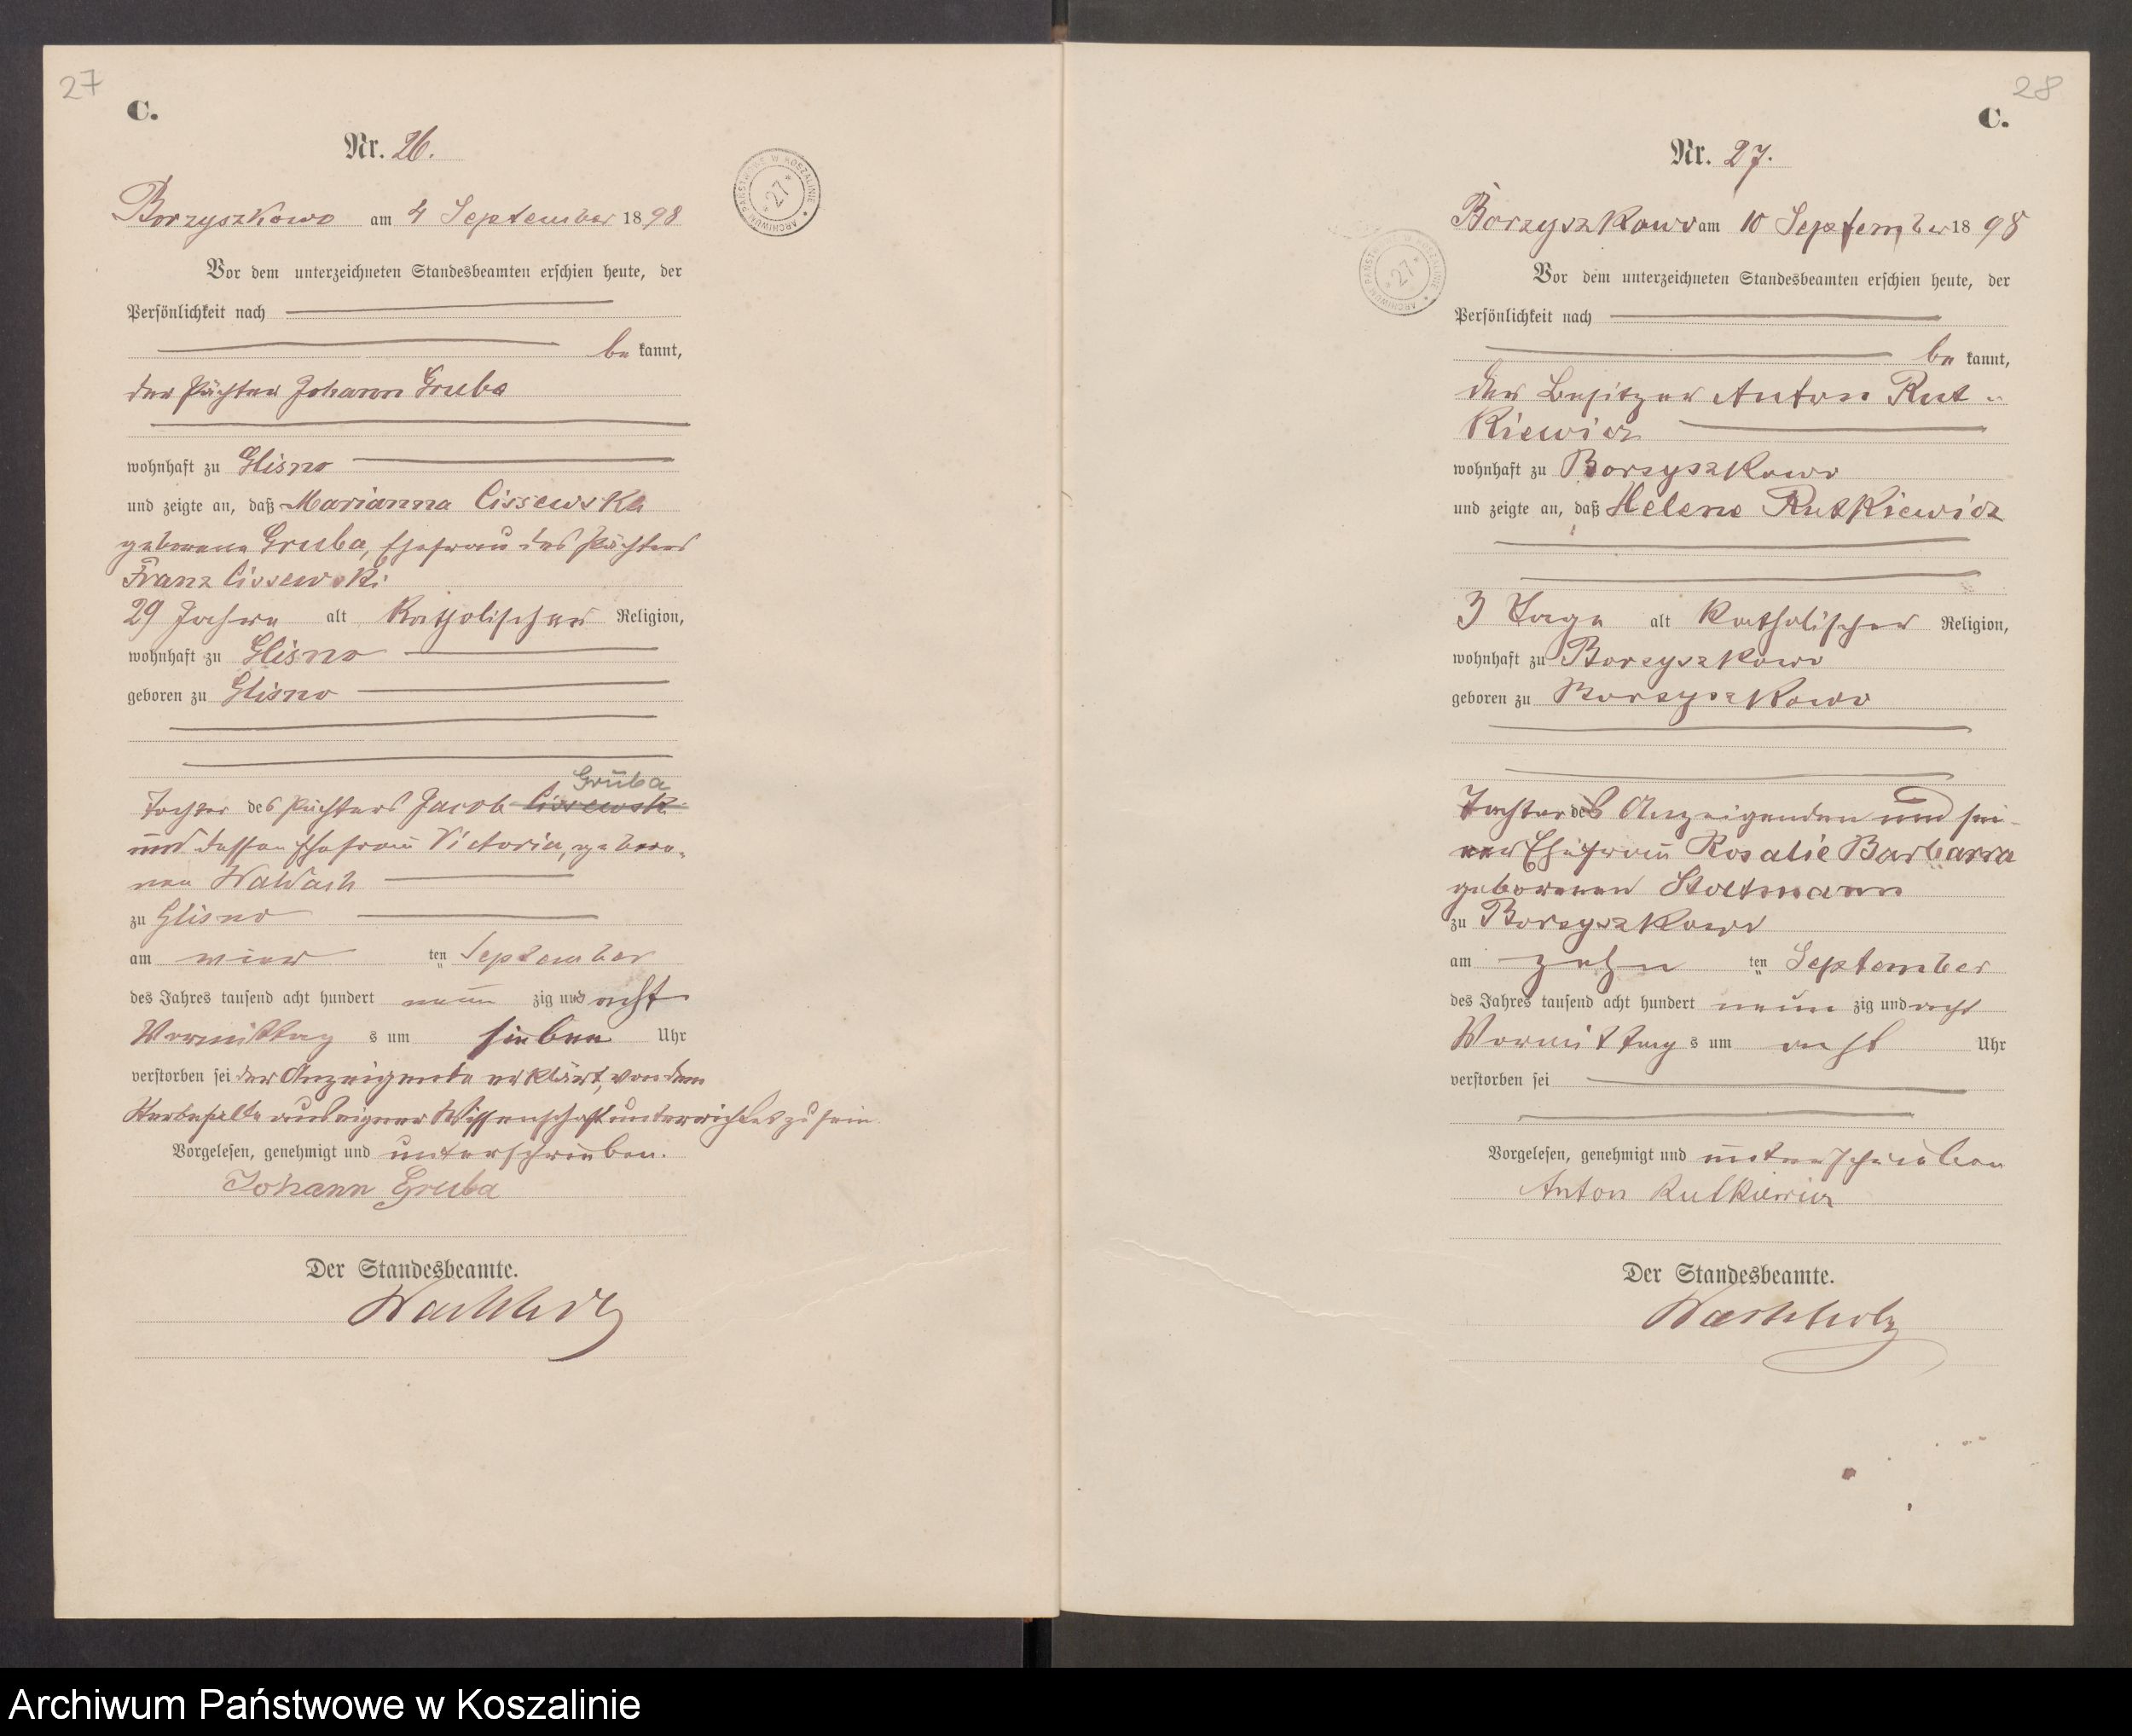 27
C.
Nr. 26.
ARCHIWUM PAŃSTWOWE W KOSZALINIE
* 27 *
Borzyszkowo am 4 September 1898
Vor dem unterzeichneten Standesbeamten erschien heute, der
Persönlichkeit nach
be kannt,
der Pächter Johann Gruba
wohnhaft zu Glisno
und zeigte an, daß Marianna Cissewska
geborene Gruba, Ehefrau des Pächters
Franz Cissewski
29 Jahre alt Katholischer Religion,
wohnhaft zu Glisno
geboren zu Glisno
Grüba
Tochter des Pächters Jacob Cissewski
und dessen Ehefrau Victoria, gebore-
nen
zu Glisno
am vier ten September
des Jahres tausend acht hundert neun zig und acht
Vormittag s um sieben Uhr
verstorben sei der Anzeigende erklärt, von dem
Sterbefalle aus eigner Wissenschaft unterrichtet zu sein.
Vorgelesen, genehmigt und unterschrieben.
Johann Gruba
Der Standesbeamte.
Wachholz
28
C.
Nr. 27.
ARCHIWUM PAŃSTWOWE W KOSZALINIE
* 27 *
Borzyszkowo am 10 September 1898
Vor dem unterzeichneten Standesbeamten erschien heute, der
Persönlichkeit nach
be kannt,
der Besitzer Anton Rut-
kiewicz
wohnhaft zu Borzyszkowo
und zeigte an, daß Helene Rutkiewicz
3 Tage alt Katholischer Religion,
wohnhaft zu Borzyszkowo
geboren zu Borzyszkowo
Tochter des Anzeigenden und sei-
ner Ehefrau Rosalie Barbarra
geborenen Stoltmann
zu Borzyszkowo
am zehn ten September
des Jahres tausend acht hundert neun zig und acht
Vormittag s um acht Uhr
verstorben sei
Vorgelesen, genehmigt und unterschrieben
Anton Rutkiewicz
Der Standesbeamte.
Wachholz
Archiwum Państwowe w Koszalinie